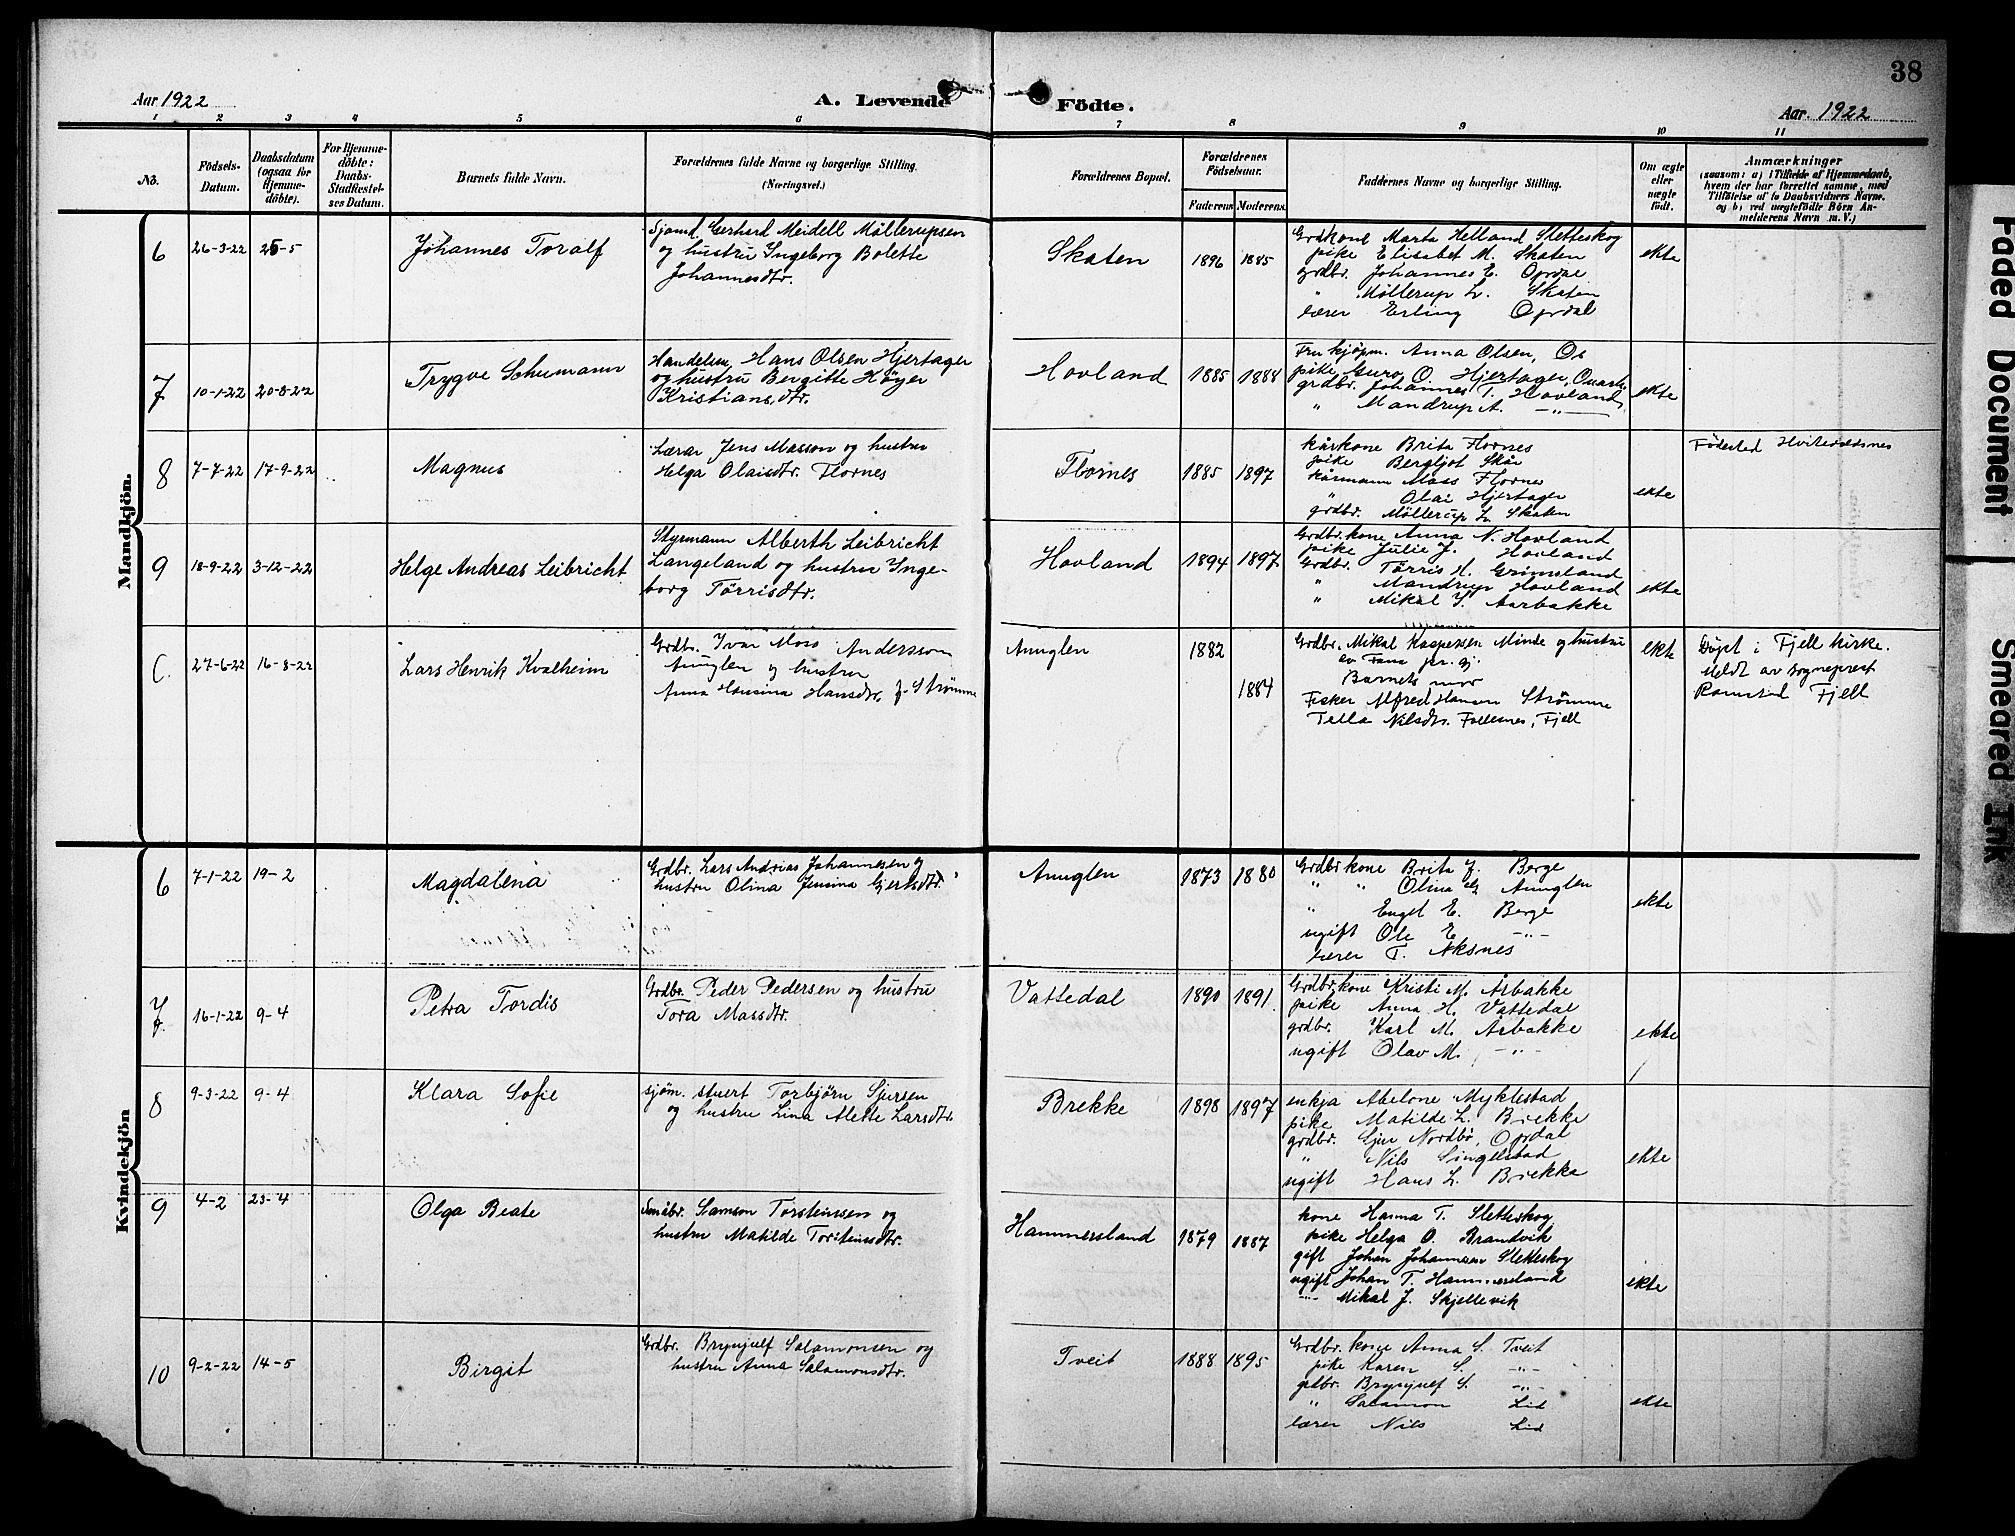 38
Aar 1922
A. Levende Födte.
Aar 1922
1 2 3 4 5 6 7 8 9 10 11
No.
Födsels-Datum.
Daabsdatum (ogsaa for Hjemmedöbte).
For Hjemmedöbte: Daabs-Stadfæstelses Datum.
Barnets fulde Navn.
Forældrenes fulde Navne og borgerlige Stilling. (Næringsvei.)
Forældrenes Bopæl.
Forældrenes Födselsaar.
Faderens Moderens
Faddernes Navne og borgerlige Stilling.
Om ægte eller uægte födt.
Anmærkninger
(saasom: a) i Tilfælde af Hjemmedaab, hvem der har forrettet samme, med Tilföielse af to Daabsvidners Navne. og b) ved uægtefödte Börn Anmelderens Navn m. V.)
Mandkjön.
6 26-3-22 25-5 Johannes Toralf
Sjømd. Gerhard Meidell Møllerupsen
og hustru Ingeborg Bolette
Johannesdtr.
Skaten 1896 1885
Grdkone Marta Helland Sletteskog
pike Elisabet M. Skaten
grdbr. Johannes E. Opdal
" Møllerup L. Skaten
lærer Erling Opdal
ekte
7 10-1-22 20-8-22 Trygve Schumann
Handelsm. Hans Olsen Hjertager
og hustru Bergitte Høyer
Kristiansdtr.
Hovland 1885 1888
Fru kjøpm. Anna Olsen, Os
pike Guro O. Hjertager,
grdbr. Johannes T. Hovland
" Mandrup A. -"-
ekte
8 7-7-22 17-9-22 Magnus
Lærar Jens Masson og hustru
Helga Olaisdtr. Flornes
Flornes 1885 1897
kårkone Brita Flornes
pike Bergljot Skår
kårmann Mass Flornes
" Olai Hjertager
grdbr. Møllerup L. Skaten
ekte
Fødested Hviteveldsnes
9 18-9-22 3-12-22 Helge Andreas Leibricht
Styrmann Alberth Leibricht
Langeland og hustru Inge-
borg Tørrisdtr.
Hovland 1894 1897
Grdbr.kone Anna N. Hovland
pike Julie J. Hovland
Grdbr. Tørris H. Grimsland
" Mandrup Hovland
" Mikal S. Aarbakke
ekte
C. 27-6-22 16-8-22 Lars Henrik Kvalheim
Grdbr. Ivar Mons Anderssom
Anuglen og hustru
Anna Hansina Hansdtr. f. Strømme
Anuglen 1882
1884
Grdbr. Mikal Kaspersen Minde og hustru
av Fana
Barnets mor
Fisker Alfred Hansen Strømme
Tella Nilsdtr. Follesnes, Fjell
ekte
Døpt i Fjell kirke.
Meldt av sogneprest
Ramstad Fjell
Kvindekjön
6 7-1-22 19-2 Magdalena
Grdbr. Lars Andrias Johannesen og
hustru Olina Jensina Gjertsdtr.
Anuglen 1873 1880
Grdbrkone Brita J. Berge
" " Olina G. Anuglen
" Engel E. Berge
ugift Ole E. -"-
lærer T. Aksnes
ekte
7. 16-1-22 9-4 Petra Tordis
Grdbr. Peder Pedersen og hustru
Tora Massdtr.
Vattedal 1890 1891.
Grdbrkone Kristi M. Årbakke
pike Anna H. Vattedal
grdbr. Karl M. Årbakke
ugift Olav M. -"-
ekte
8 9-3-22 9-4 Klara Sofie
sjøm. stuert Torbjørn Sjursen
og hustru Lina Alette Larsdtr.
Brekke 1898 1897
enkja Abelone Myklestad
pike Matilde L. Brekke
grdbr. Gjer Nordbø, Opdal
" Nils Singelstad
ugift Hans L. Brekke
ekte
9 4-2 23-4 Olga Beate
Småbr. Samson Torsteinssen og
hustru Matilde Torsteinsdtr.
Hammersland 1879 1887
kone Hanna T. Sletteskog
pike Helga O. Brandvik
gift Johan Johannesen Sletteskog
ugift Johan T. Hammersland
-"- Mikal J. Skjellevik
ekte
10 9-2-22 14-5 Birgit
Grdbr. Brynjulf Salamonsen og
hustru Anna Salamonsdtr.
Tveit 1888 1895
Grdbr.kone Anna S. Tveit
pike Karen S. -"-
grdbr. Brynjulf S. -"-
" Salamon Lid
lærer Nils Lid
ekte
Faded Document
Smeared Ink